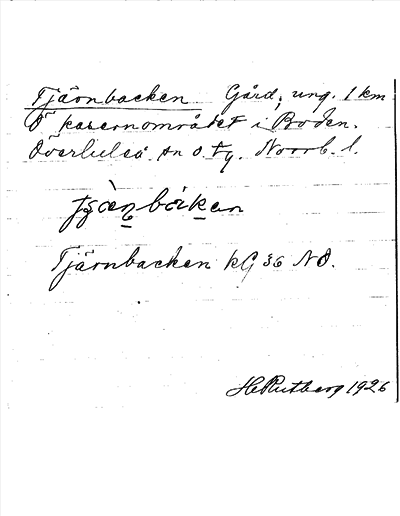 Tjärnbacken Gård, ung. 1 km
Ö kasernområdet i Boden.
Överluleå sn o. tg. Norrb. l.
Tjärnbacken KG 36 NO.
H. Rutberg 1926